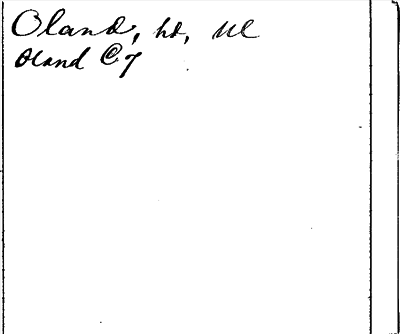 Oland, hd, Ul
Oland C7